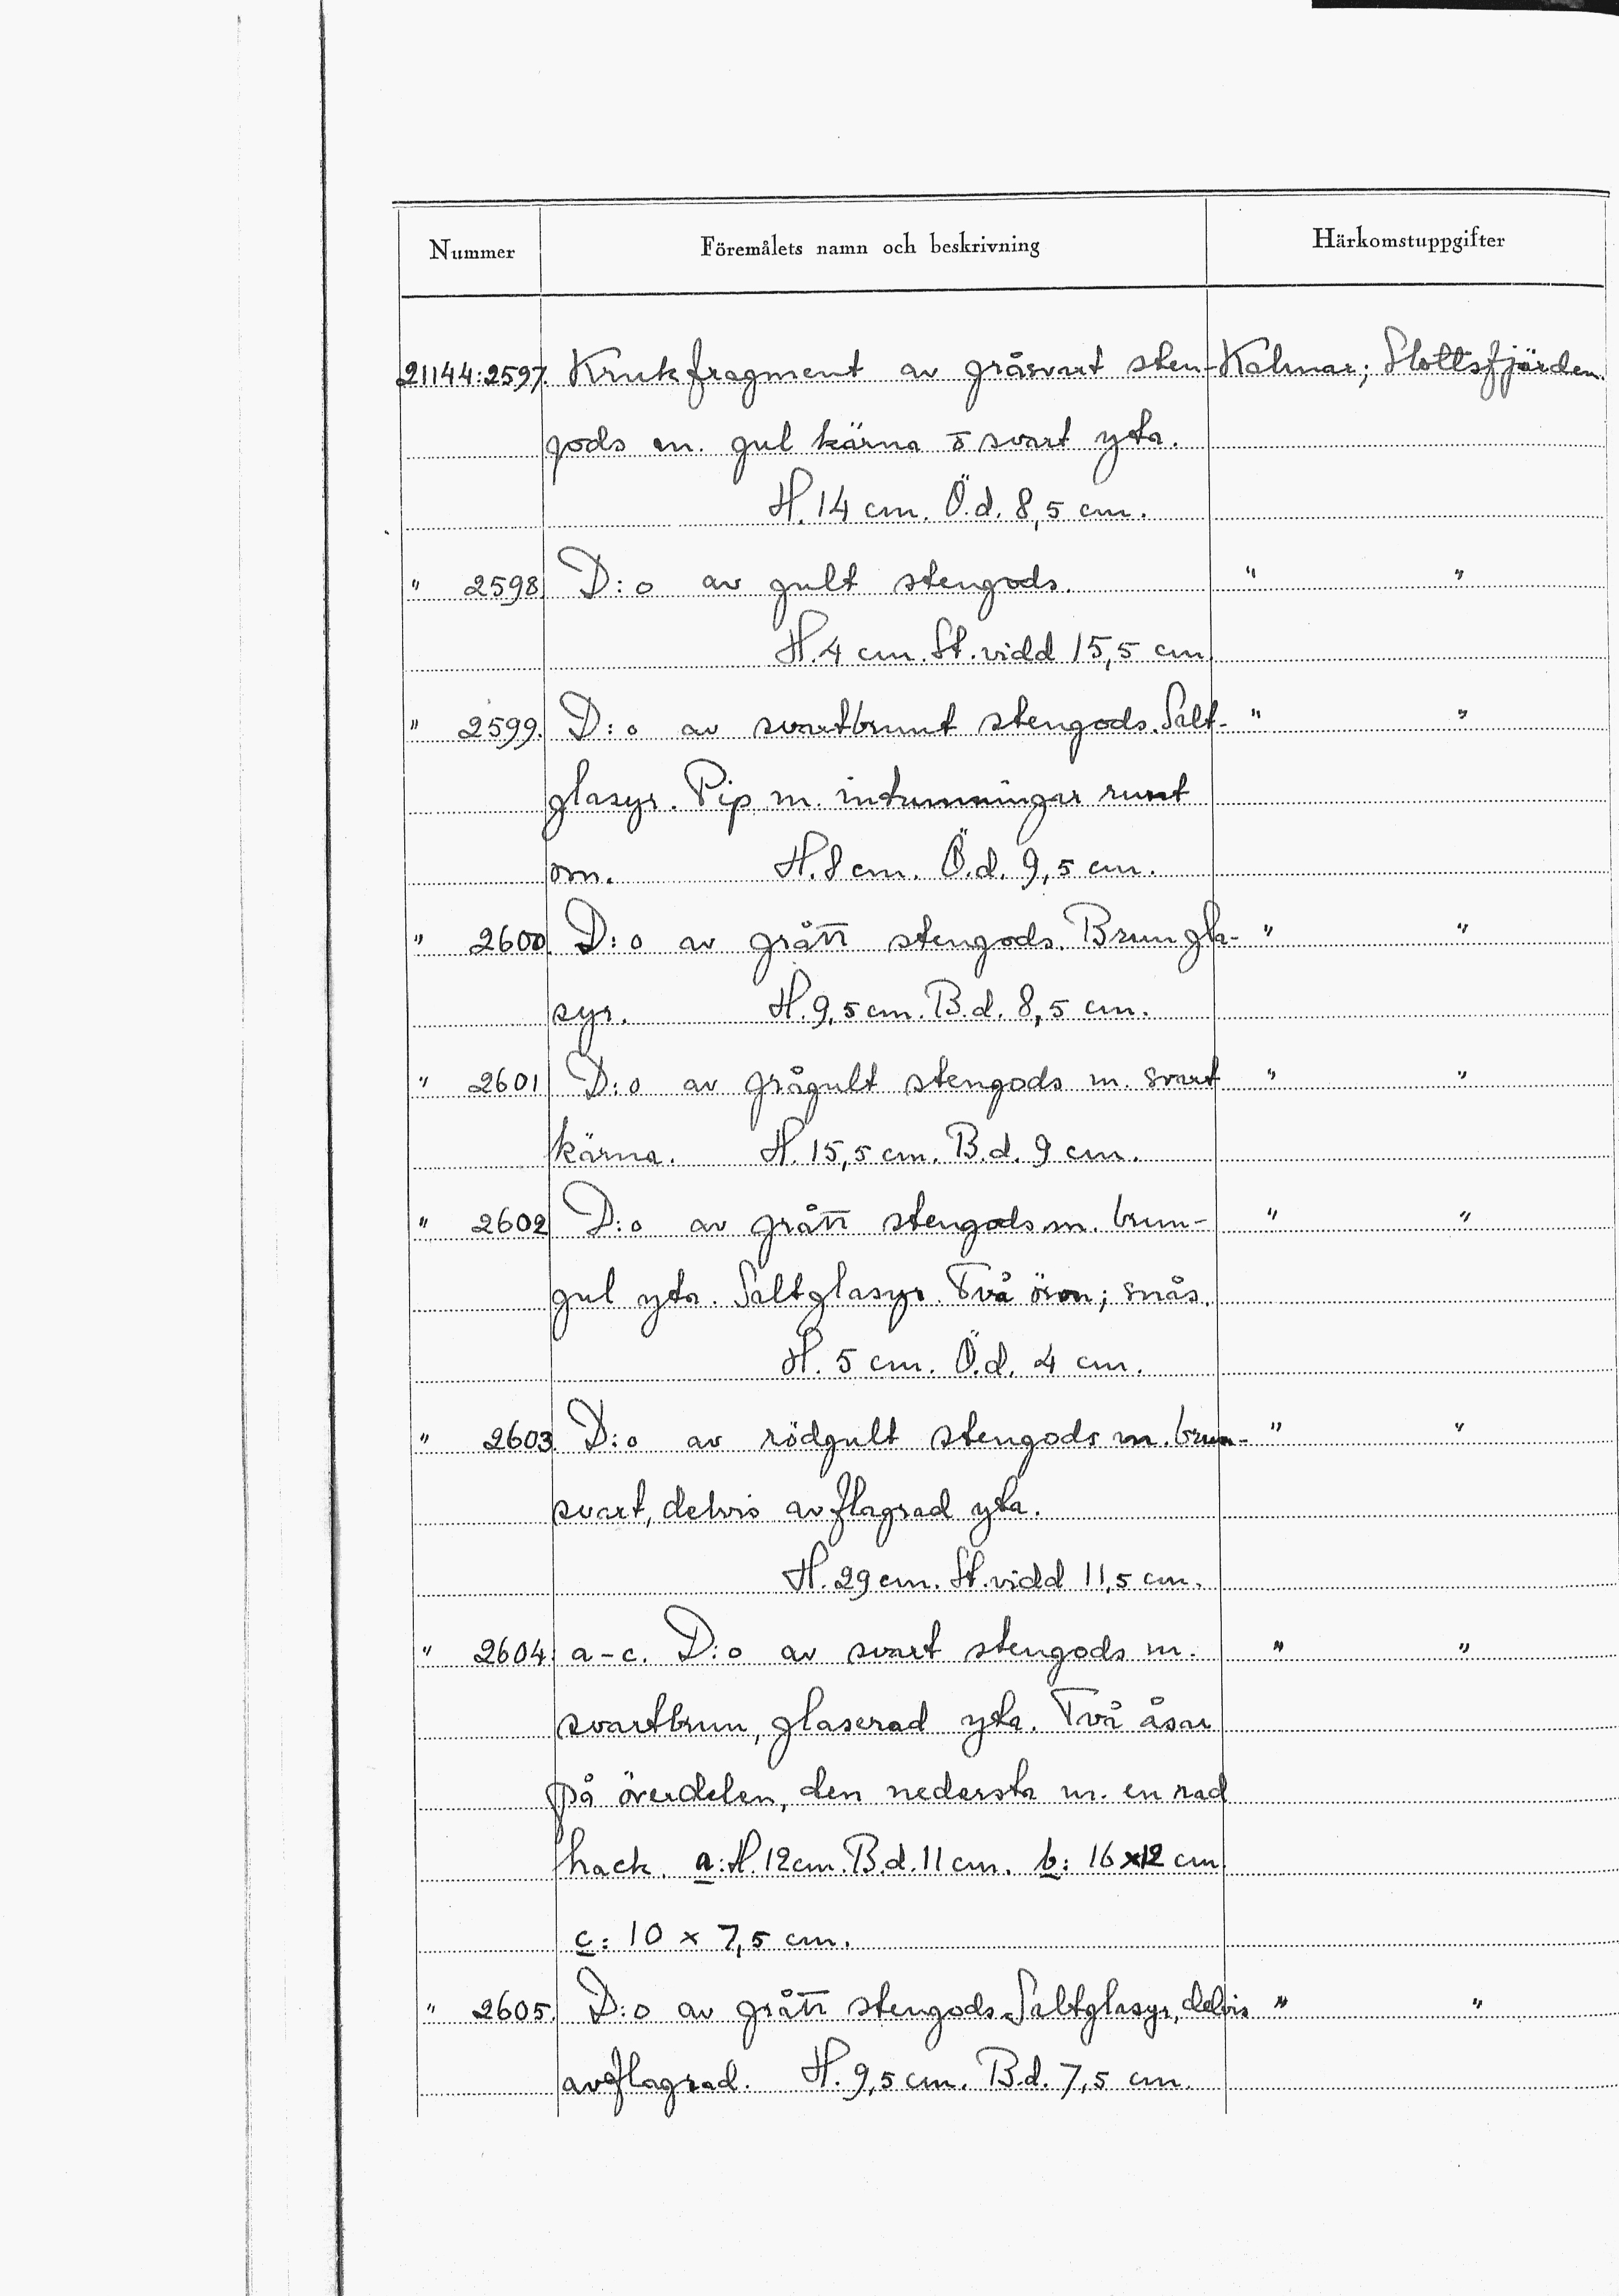 Nummer Föremålets namn och beskrivning Härkomstuppgifter
21144:2597. Krukfragment av gråsvart sten- Kalmar; Slottsfjärden.
gods m. gul kärna o svart yta.
H. 14 cm. Ö.d. 8,5 cm.
" 2598 D:o av gult stengods. " "
H. 4 cm. St. vidd 15,5 cm.
" 2599. D:o av svartbrunt stengods. Salt- " "
glasyr. Pip m. intumningar runt
om. H. 8 cm. Ö.d. 9,5 cm.
" 2600. D:o av grått stengods. Brun gla- " "
syr. H. 9,5 cm. B.d. 8,5 cm.
" 2601 D:o av grågult stengods m. svart " "
kärna. H. 15,5 cm. B.d. 9 cm.
" 2602 D:o av grått stengods m. brun- " "
gul yta. Saltglasyr. Två öron; snås.
H. 5 cm. Ö.d. 4 cm.
" 2603. D:o av rödgult stengods m. brun- " "
svart, delvis avflagrad yta.
H. 29 cm. St. vidd 11,5 cm.
" 2604: a-c. D:o av svart stengods m. " "
svartbrun, glaserad yta. Två åsar
på överdelen, den nedersta m. en rad
hack. a: H. 12 cm. B.d. 11 cm. b: 16 x 12 cm
c: 10 x 7,5 cm.
" 2605. D:o av grått stengods. Saltglasyr, delvis " "
avflagrad. H. 9,5 cm. B.d. 7,5 cm.